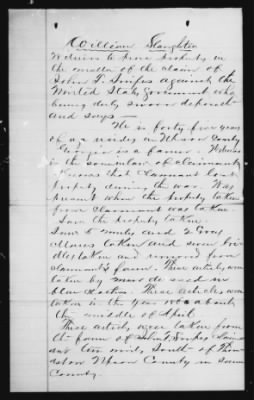 William Slaughter
Witness to prove property in
the matter of the claim of
John T. against the
United States Government who
being duly sworn deposeth
and says —
He is forty five years
of age resides in Upson County
Georgia is a farmer.
in the of claimant
Knows that claimant lost
property during the war. Was
present when the property taken
from claimant was taken
Saw the property taken.
Saw mules and 2 Gray
Mares taken and
taken and removed from
claimant's farm. These articles were
taken by men dressed in
blue clothes. These articles were
taken in the year 1865 about
the middle of April.
These articles were taken from
the farm of John T.
ten miles South of Thom
aston Upson County in
County.